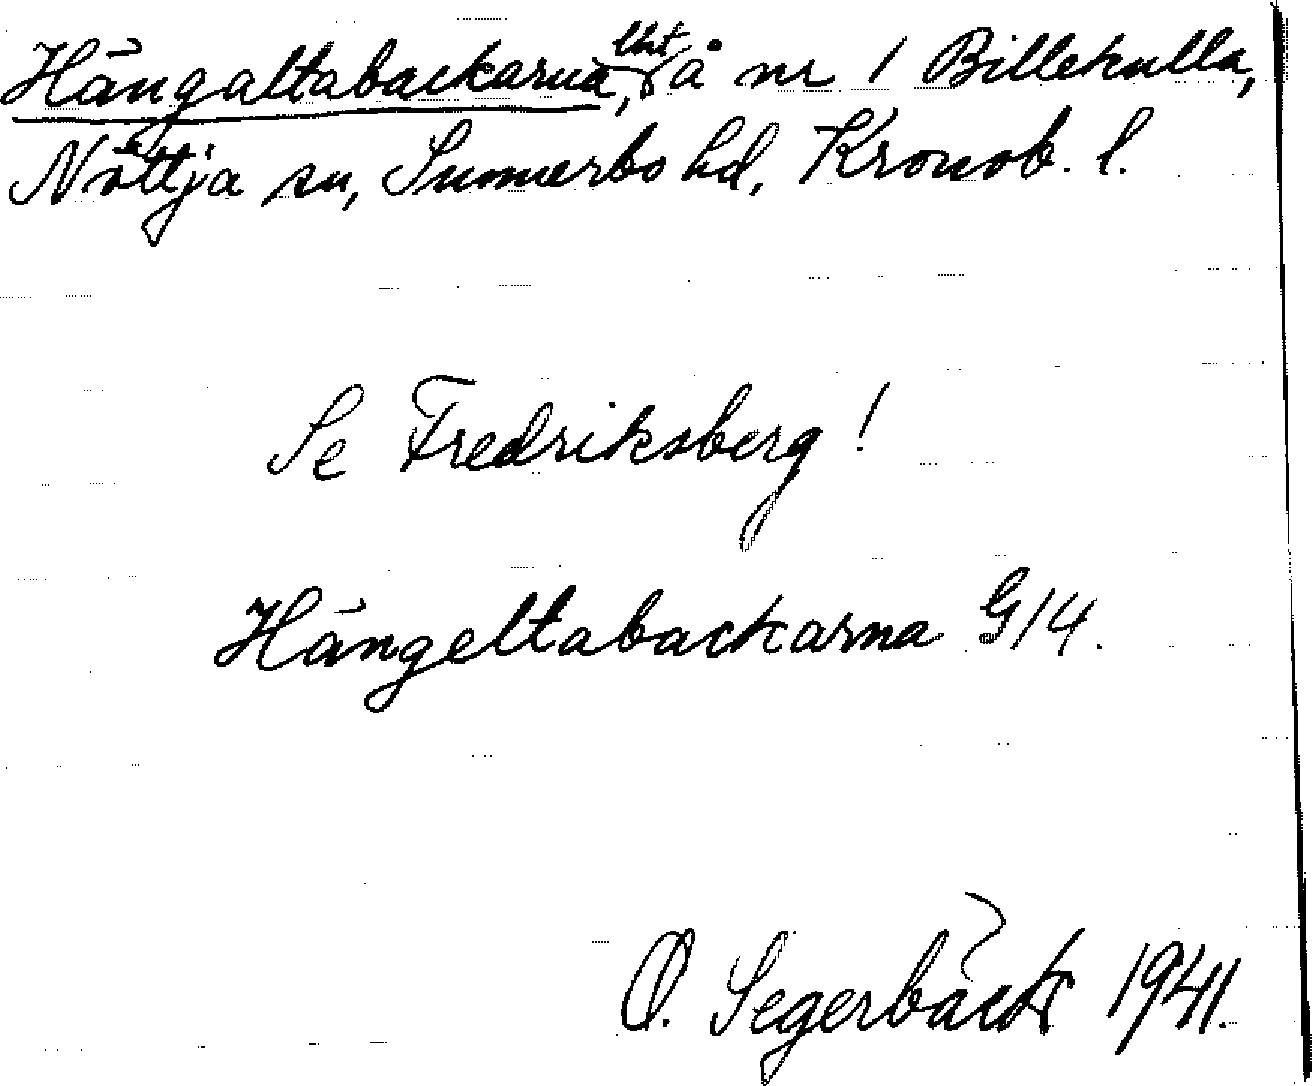 Hängaltabackarna, lht å nr 1 Billekulla,
Nöttja sn, Sunnerbo hd, Kronob. l.
Se Fredriksberg!
Hängeltabackarna G14.
O. Segerbäck 1941.